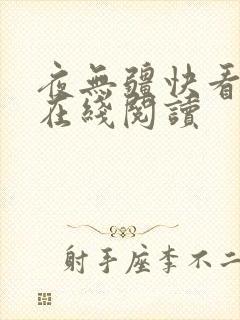 夜無疆快看
在綫閱讀
射手座李不二